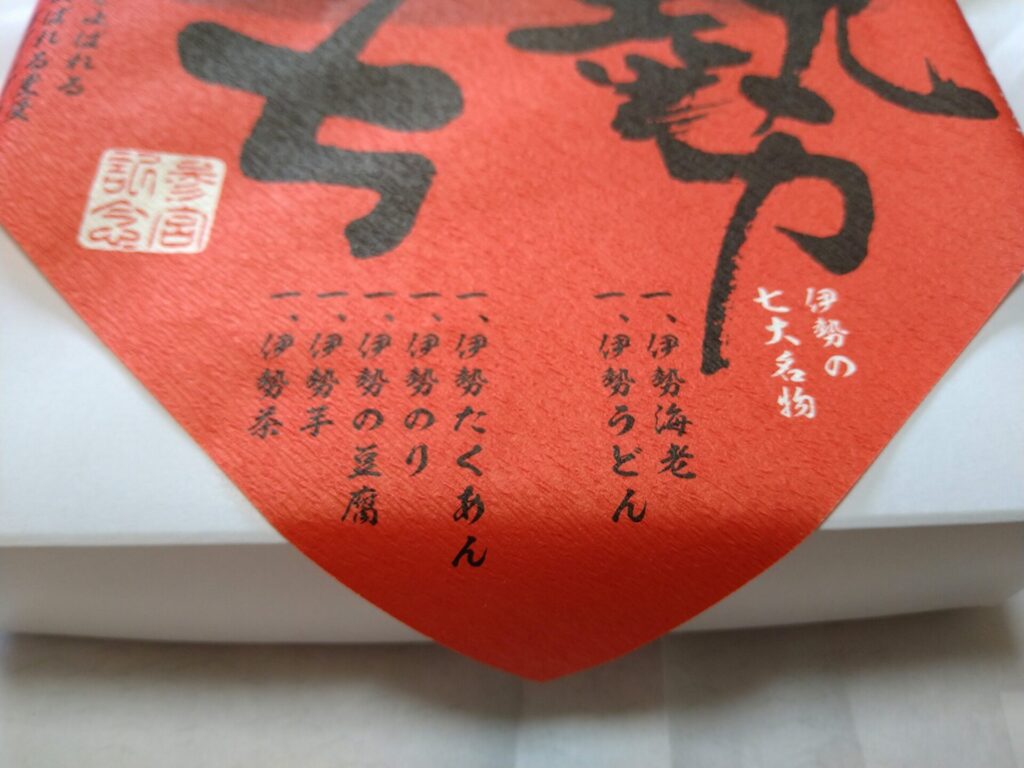 勢
七
伊勢の
七大名物
一、伊勢海老
一、伊勢うどん
一、伊勢たくあん
一、伊勢のり
一、伊勢の豆腐
一、伊勢芋
一、伊勢茶